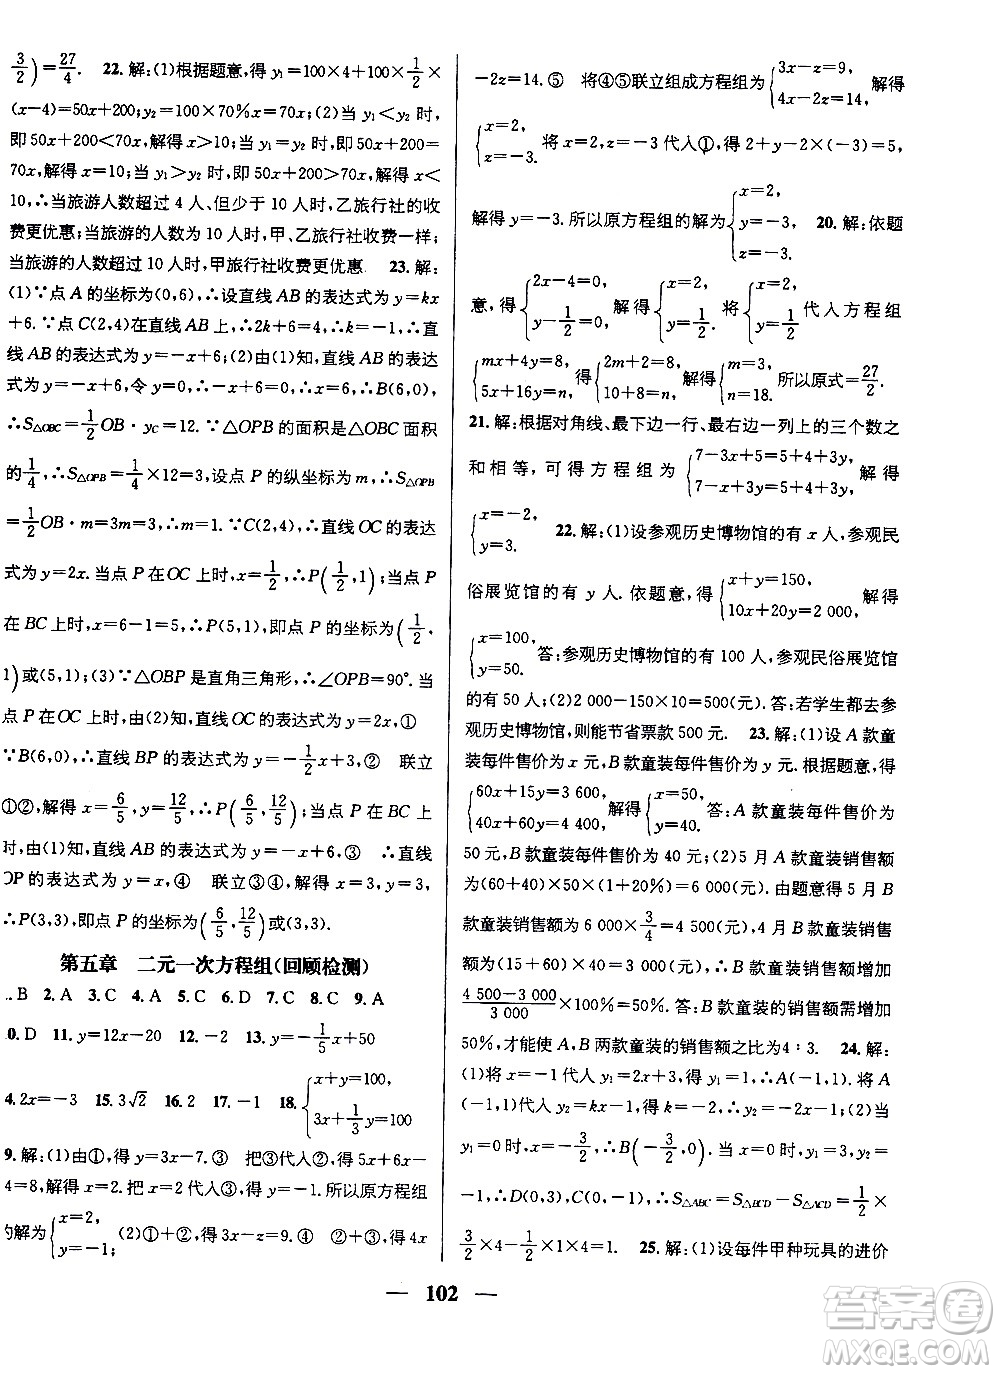 3/2)=27/4. 22.解:(1)根据题意,得 y₁=100×4+100×1/2×
(x-4)=50x+200;y₂=100×70%x=70x;(2)当 y₁<y₂ 时,
即 50x+200<70x,解得 x>10;当 y₁=y₂ 时,即 50x+200=
70x,解得 x=10;当 y₁>y₂ 时,即 50x+200>70x,解得 x<
10,∴当旅游人数超过 4 人、但少于 10 人时,乙旅行社的收
费更优惠;当旅游的人数为 10 人时,甲、乙旅行社收费一样;
当旅游的人数超过 10 人时,甲旅行社收费更优惠. 23.解:
(1)∵点 A 的坐标为(0,6),∴设直线 AB 的表达式为 y=kx
+6.∵点 C(2,4)在直线 AB 上,∴2k+6=4,∴k=-1,∴直
线 AB 的表达式为 y=-x+6;(2)由(1)知,直线 AB 的表达
式为 y=-x+6,令 y=0,∴-x+6=0,∴x=6,∴B(6,0),
∴S△OBC=1/2 OB·yC=12.∵△OPB 的面积是△OBC 面积
的1/4,∴S△OPB=1/4×12=3,设点 P 的纵坐标为 m,∴S△OPB
=1/2 OB·m=3m=3,∴m=1.∵C(2,4),∴直线 OC 的表达
式为 y=2x.当点 P 在 OC 上时,x=1/2,∴P(1/2,1);当点 P
在 BC 上时,x=6-1=5,∴P(5,1),即点 P 的坐标为(1/2,
1)或(5,1);(3)∵△OBP 是直角三角形,∴∠OPB=90°.当
点 P 在 OC 上时,由(2)知,直线 OC 的表达式为 y=2x,①
∵B(6,0),∴直线 BP 的表达式为 y=-1/2x+3,② 联立
①②,解得 x=6/5,y=12/5,∴P(6/5,12/5);当点 P 在 BC 上
时,由(1)知,直线 AB 的表达式为 y=-x+6,③ ∴直线
OP 的表达式为 y=x,④ 联立③④,解得 x=3,y=3,
∴P(3,3),即点 P 的坐标为(6/5,12/5)或(3,3).
第五章 二元一次方程组(回顾检测)
.B 2.A 3.C 4.A 5.C 6.D 7.C 8.C 9.A
0.D 11.y=12x-20 12.-2 13.y=-1/5x+50
4.2x=-3 15.3√2 16.2 17.-1 18.{x+y=100, 3x+1/3y=100
9.解:(1)由①,得 y=3x-7.③ 把③代入②,得 5x+6x-
4=8,解得 x=2.把 x=2 代入③,得 y=-1.所以原方程组
的解为{x=2, y=-1; (2)①+②,得 3x-z=9.④ ①+③,得 4x
-2z=14.⑤ 将④⑤联立组成方程组为{3x-z=9, 4x-2z=14, 解得
{x=2, z=-3. 将 x=2,z=-3 代入①,得 2+y-2×(-3)=5,
解得 y=-3.所以原方程组的解为{x=2, y=-3, z=-3. 20.解:依题
意,得{2x-4=0, y-1/2=0, 解得{x=2, y=1/2. 将{x=2, y=1/2 代入方程组
{mx+4y=8, 5x+16y=n, 得{2m+2=8, 10+8=n, 解得{m=3, n=18. 所以原式=27/2.
21.解:根据对角线、最下边一行、最右边一列上的三个数之
和相等,可得方程组为{7-3x+5=5+4y, 7-x+y=3+4y. 解得
{x=-2, y=3. 22.解:(1)设参观历史博物馆的有 x 人,参观民
俗展览馆的有 y 人.依题意,得{x+y=150, 10x+20y=2 000, 解得
{x=100, y=50. 答:参观历史博物馆的有 100 人,参观民俗展览馆
的有 50 人;(2)2 000-150×10=500(元).答:若学生都去参
观历史博物馆,则能节省票款 500 元. 23.解:(1)设 A 款童
装每件售价为 x 元,B 款童装每件售价为 y 元.根据题意,得
{60x+15y=3 600, 40x+60y=4 400. 解得{x=50, y=40. 答:A 款童装每件售价为
50 元,B 款童装每件售价为 40 元;(2)5 月 A 款童装销售额
为(60+40)×50×(1+20%)=6 000(元).由题意得 5 月 B
款童装销售额为 6 000×3/4=4 500(元),4 月 B 款童装销售
额为(15+60)×40=3 000(元),∴B 款童装销售额增加
(4 500-3 000)/3 000×100%=50%.答:B 款童装的销售额需增加
50%,才能使 A,B 两款童装的销售额之比为4∶3. 24.解:
(1)将 x=1 代入 y₁=2x+3,得 y₁=1,∴A(-1,1).将 A
(-1,1)代入 y₂=kx-1,得 k=-2;(2)当 x=0 时,y₁=3,当
y₁=0 时,x=-3/2,∴B(-3/2,0).当 x=0 时,y₂=
-1,∴D(0,3),C(0,-1),∴S△ABC=S△BCD-S△ACD=1/2×
3/2×4-1/2×1×4=1. 25.解:(1)设每件甲种玩具的进价
— 102 —
答案圈
MXQE.COM